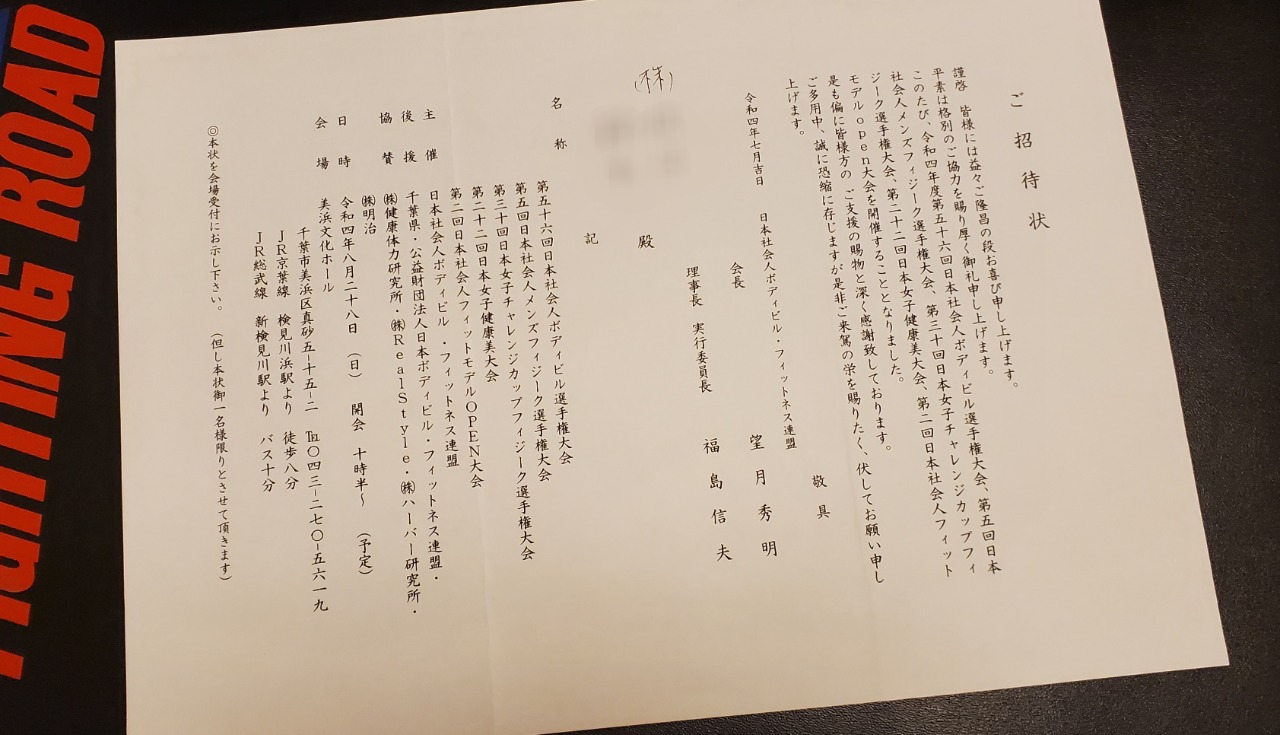 ご招待状
謹啓 皆様には益々ご隆昌の段お喜び申し上げます。
平素は格別のご協力を賜り厚く御礼申し上げます。
このたび、令和四年度第五十六回日本社会人ボディビル選手権大会、第五回日本
社会人メンズフィジーク選手権大会、第三十回日本女子チャレンジカップフィ
ジーク選手権大会、第二十二回日本女子健康美大会、第二回日本社会人フィット
モデルopen大会を開催することとなりました。
是も偏に皆様方の ご支援の賜物と深く感謝致しております。
ご多用中、誠に恐縮に存じますが是非ご来駕の栄を賜りたく、伏してお願い申し
上げます。
敬具
令和四年七月吉日 日本社会人ボディビル・フィットネス連盟
会長 望月秀明
理事長 実行委員長 福島信夫
(株) 殿
記
名称 第五十六回日本社会人ボディビル選手権大会
第五回日本社会人メンズフィジーク選手権大会
第三十回日本女子チャレンジカップフィジーク選手権大会
第二十二回日本女子健康美大会
第二回日本社会人フィットモデルOPEN大会
主催 日本社会人ボディビル・フィットネス連盟
後援 千葉県・公益財団法人日本ボディビル・フィットネス連盟・
協賛 ㈱健康体力研究所・㈱RealStyle・㈱ハーバー研究所・
㈱明治
日時 令和四年八月二十八日 (日) 開会 十時半~ (予定)
会場 美浜文化ホール
千葉市美浜区真砂五-十五-二 ℡〇四三-二七〇-五六一九
JR京葉線 検見川浜駅より 徒歩八分
JR総武線 新検見川駅より バス十分
◎本状を会場受付にお示し下さい。 (但し本状御一名様限りとさせて頂きます)
ROAD